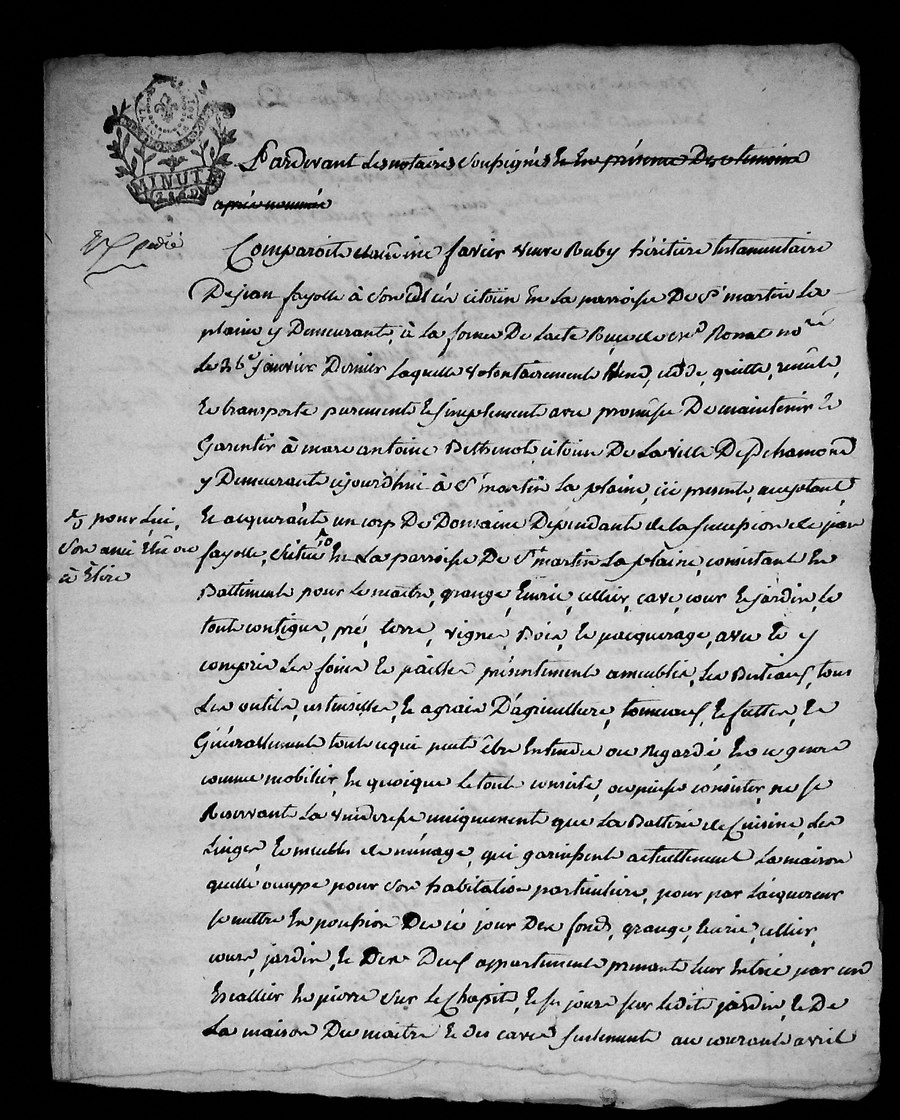 MINUTE
Pardevant Les notaires Soussignés Et En présence Des témoins
après nommés
Expédié
Comparoit Claudine favier veuve Ruby héritière testamentaire
De jean fayolle à Son décès citoien En La parroisse De St martin La
plaine y Demeurante, à La forme De Lacte Reçu de Ronat nore
Le 26e janvier Dernier Laquelle volontairement vend, cede, quitte, remête,
Et transporte purement Et Simplement avec promesse De maintenir Et
Garentir à marc antoine Bethenot citoien De La ville De Chamond
y Demeurant cejourdhui à St martin La plaine, ici present, acceptant
Et acquerant un corp De Domaine Dépendant de la Succession de jean
pour Lui,
Son ami Elû ou
à Elire
fayolle, Situé En La parroisse De St martin La plaine, consistant En
Battiments pour le maitre, grange, Ecurie, cellier, cave, cour Et jardin, le
tout contigue, pré, terre, vigne, Bois, Et pacquerage, avec Et y
compris Les foins Et pailles présentement ameublés, Les Bestiaux, tous
Les outils, ustensilles, Et agrais D'agriculture, tonneaux, Et futtes, Et
Généralement tout ce qui peut être Entendu ou Regardé, En ce genre
comme mobilier, En quoique Le tout consiste, ou puisse consister, ne Se
Reservant La venderesse uniquement que La Batterie de Cuisine, Les
Linges Et meubles de ménage, qui garnissent actuellement La maison
quelle occuppe pour Son habitation particuliere, pour par Lacquereur
Se mettre En possession De ce jour Des fonds, grange, Ecurie, cellier,
cour, jardin, Et Des Deux appartements prenants Leur Entrée par un
Escallier En pierre Sur Le Chapit, Et Ses jours Sur Ledit jardin, Et De
La maison Du maitre Et des caves Seulement au courant avril